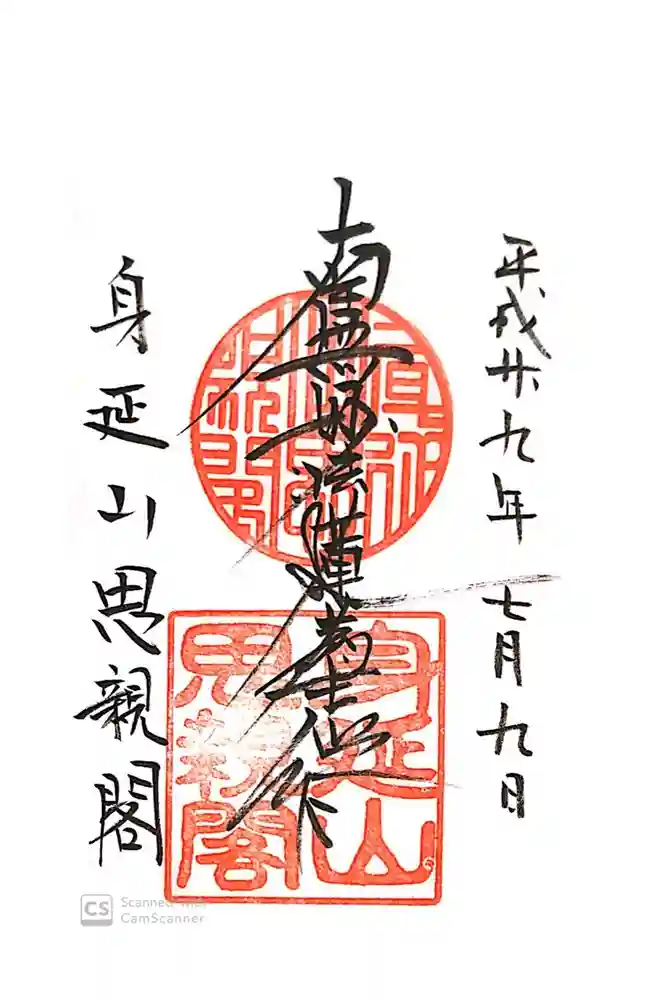 平成廿九年七月九日
南無妙法蓮華經
身延山思親閣
身延山
思親閣
CS Scanned with
CamScanner